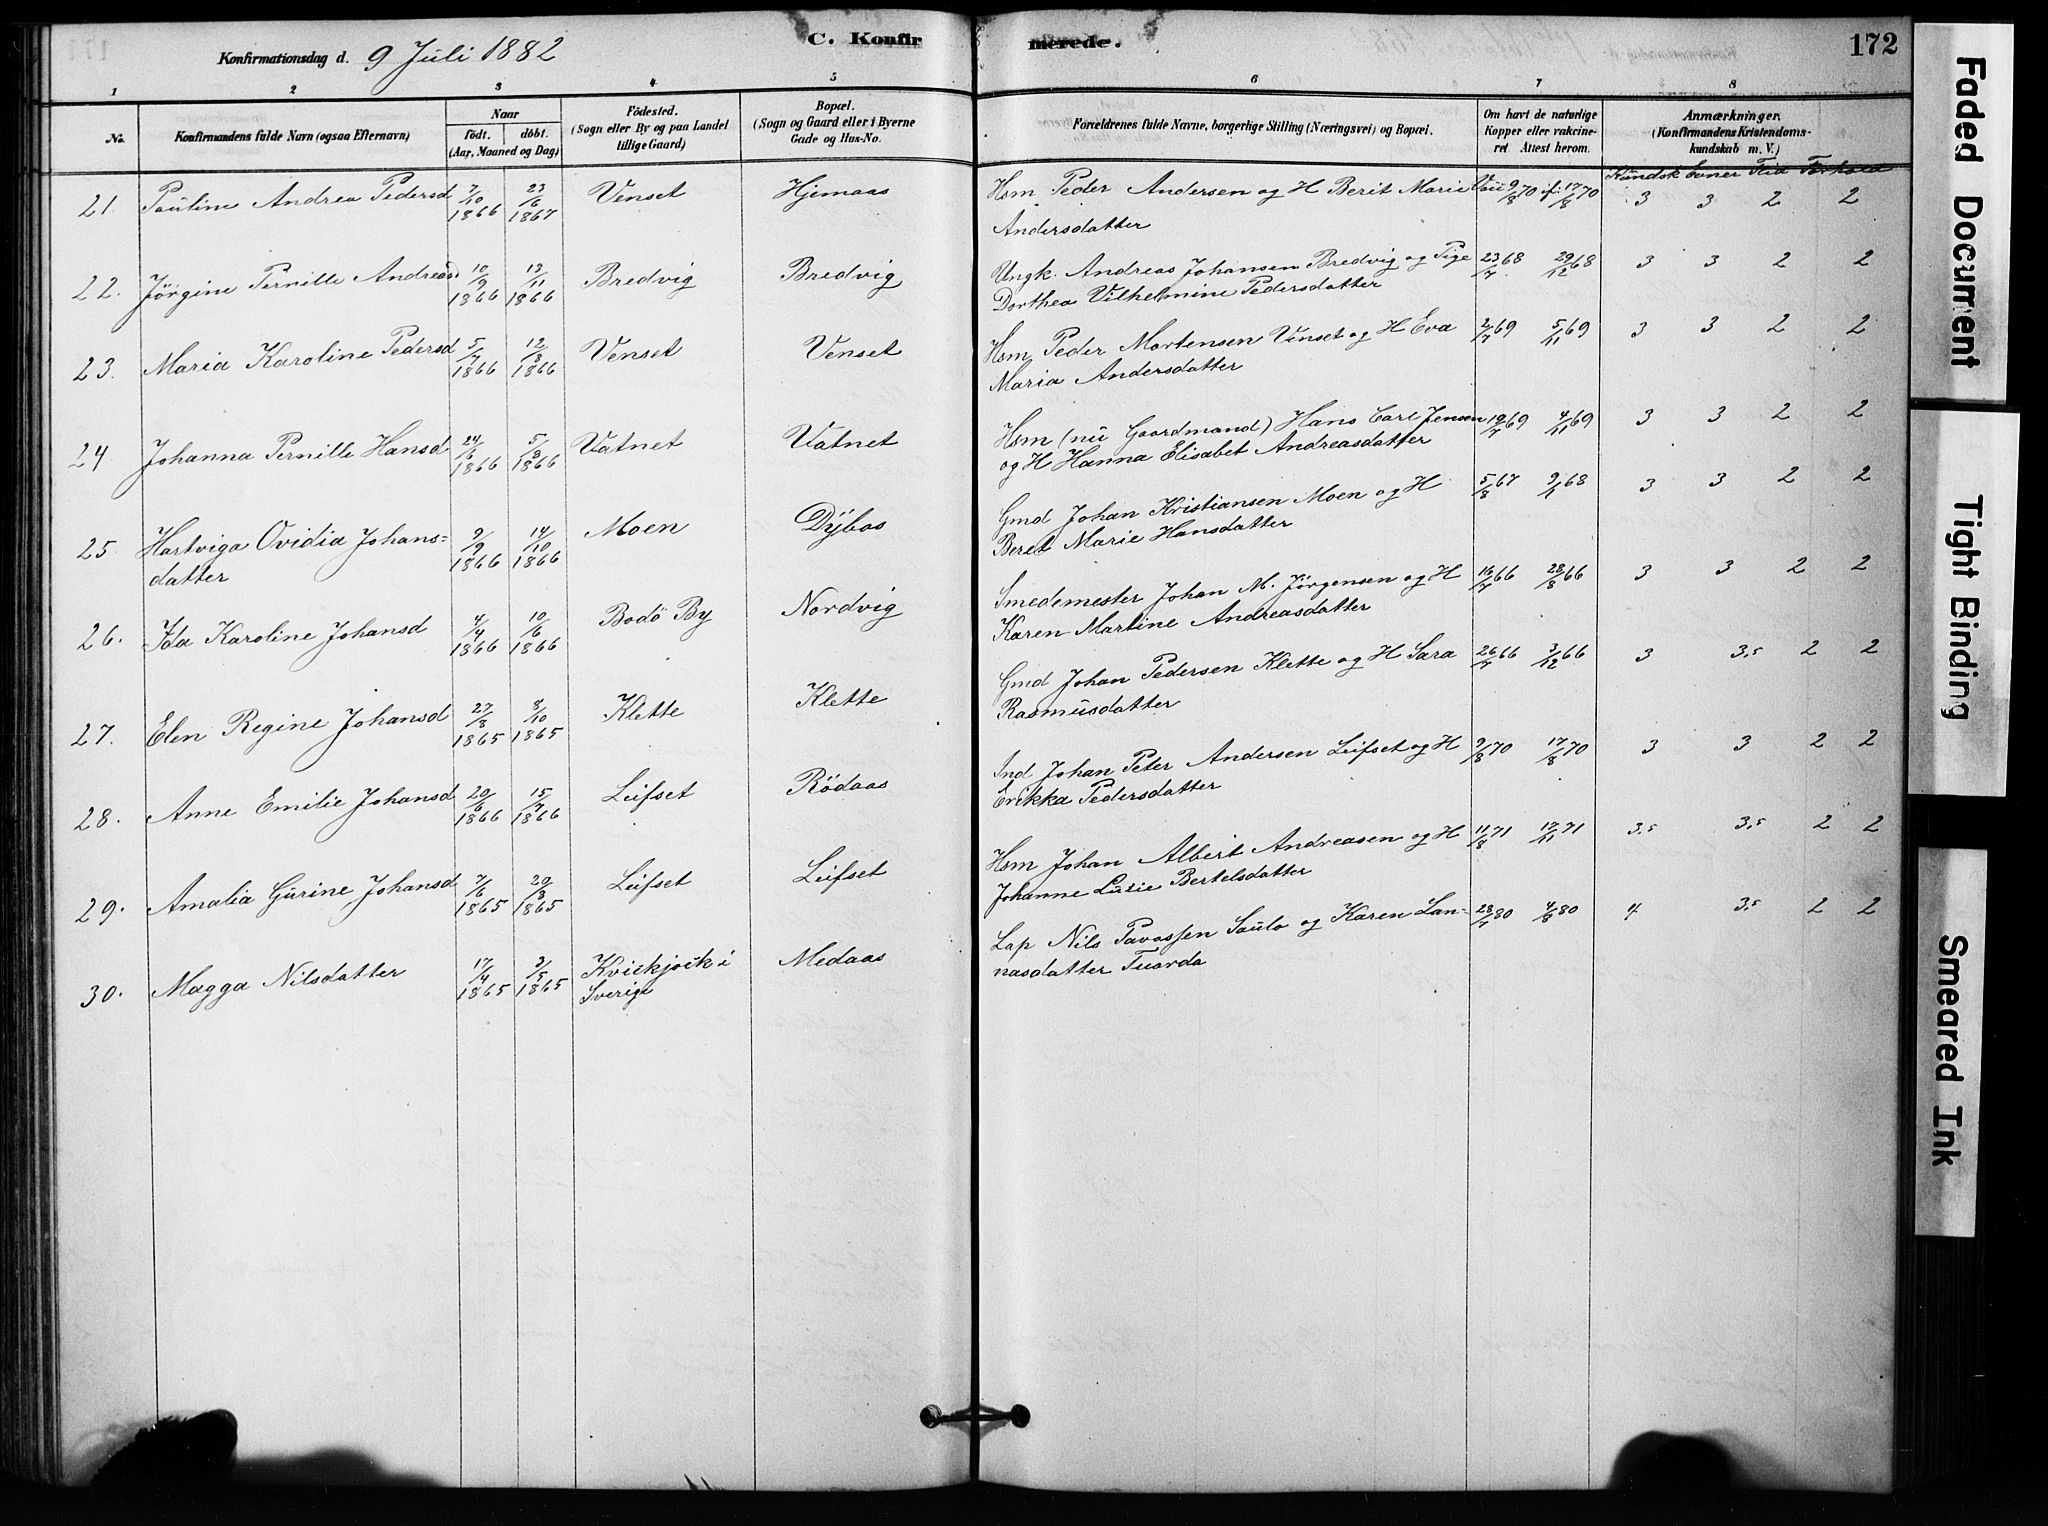 Konfirmationsdag d. 9 Juli 1882
C. Konfirmerede.
172
1 2 3 4 5 6 7 8
No.
Konfirmandens fulde Navn (ogsaa Efternavn)
Naar
født. døbt.
(Aar, Maaned og Dag)
Fødested.
(Sogn eller By og paa Landet
tillige Gaard)
Bopæl.
(Sogn og Gaard eller i Byerne
Gade og Hus-No.
Forældrenes fulde Navne, borgerlige Stilling (Næringsvei) og Bopæl.
Om havt de naturlige
Kopper eller vakcine-
ret. Attest herom.
Anmærkninger.
(Konfirmandens Kristendoms-
kundskab m. V.)
Kundsk Evner Flid Forhold
21. Pauline Andrea Pedersd 7/10 1866 23/6 1867 Venset Hjemaas Hsm Peder Andersen og H Berit Marie
Andersdatter 9/8 70 17/8 70 3 3 2 2
22. Jørgine Pernille Andreasd 10/9 1866 13/11 1866 Bredvig Bredvig Ungk. Andreas Johansen Bredvig og Pige
Dorthea Vilhelmine Pedersdatter 23/7 68 29/12 68 3 3 2 2
23. Maria Karoline Pedersd 5/7 1866 12/8 1866 Venset Venset Hsm Peder Mortensen Venset og H Eva
Maria Andersdatter 2/7 69 5/11 69 3 3 2 2
24 Johanna Pernille Hansd 24/6 1866 5/8 1866 Vatnet Vatnet Hsm (nu Gaardmand) Hans Carl Jensen
og H Hanna Elisabet Andreasdatter 19/7 69 4/11 69 3 3 2 2
25. Hartviga Ovidia Johans=
datter 9/9 1866 14/10 1866 Moen Dybos Gmd Johan Kristiansen Moen og H
Beret Marie Hansdatter 5/8 67 9/1 68 3 3 2 2
26. Ida Karoline Johansd 4/4 1866 10/6 1866 Bodö By Nordvig Smedemester Johan M. Jörgensen og H
Karen Martine Andreasdatter 16/7 66 28/8 66 3 3 2 2
27. Elen Regine Johansd 27/8 1865 8/10 1865 Klette Klette Gmd Johan Pedersen Klette og H Sara
Rasmusdatter 26/7 66 3/12 66 3 3,5 2 2
28. Anne Emilie Johansd 20/6 1866 15/7 1866 Leifset Rödaas Ind Johan Peter Andersen Leifset og H
Erikka Pedersdatter 9/8 70 17/8 70 3 3 2 2
29. Amalia Gurine Johansd 7/6 1865 20/8 1865 Leifset Leifset Hsm Johan Albert Andreasen og H
Johanne Lusie Bertelsdatter 11/8 71 17/11 71 3,5 3,5 2 2
30. Magga Nilsdatter 17/4 1865 3/5 1865 Kvickjock i
Sverige Medaas Lap Nils Pavassen Saulo og Karen Lan=
nasdatter Tuarda 28/7 80 4/8 80 4 3,5 2 2
Faded Document
Tight Binding
Smeared Ink